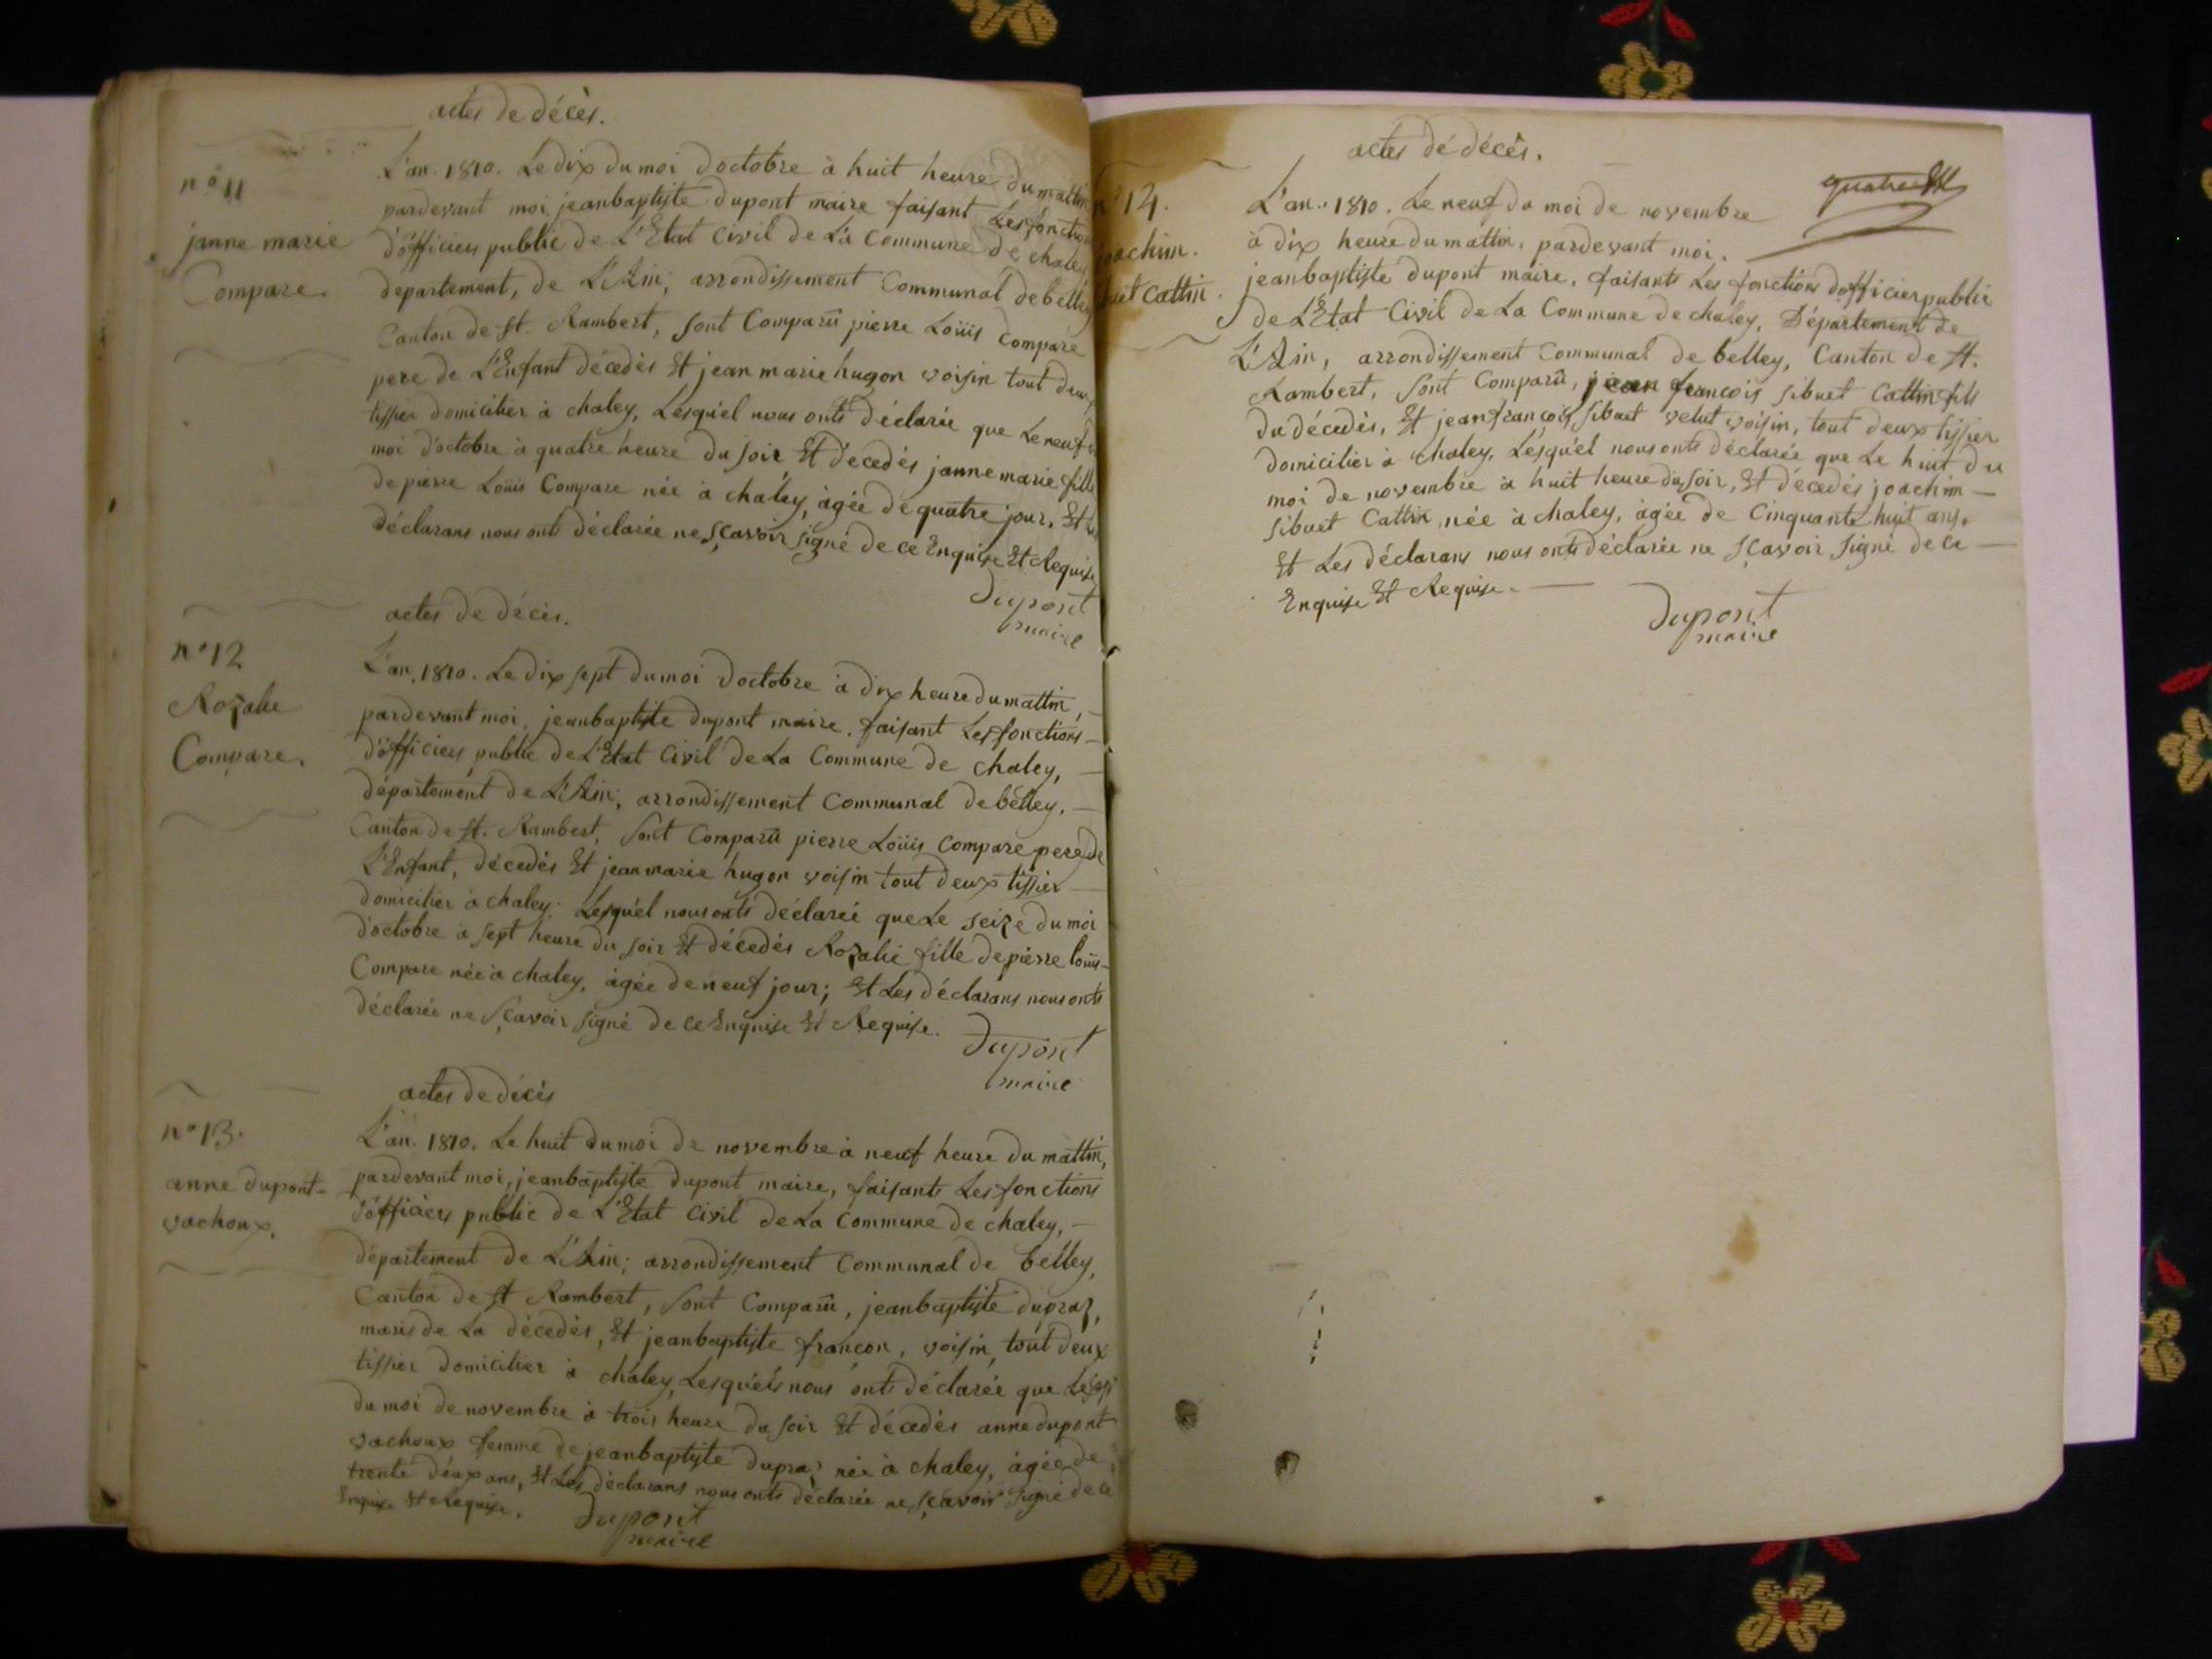 actes de décès.
n° 11
janne marie
Compare
L'an. 1810. Le dix du moi doctobre à huit heure du mattin
pardevant moi jeanbaptiste dupont maire faisant Les fonctio
d'officiers public de L'Etat Civil de La Commune de chaley
departement, de L'Ain; arrondissement Communal de belley
Canton de st. Rambert, sont Comparû pierre Loüis Compare
pere de L'Enfant décedés Et jean marie hugon voisin tout deux
tissier domicilier à chaley, Lesquél nous onts déclarée que Le neuf
moi d'octobre à quatre heure du soir Et décedés janne marie fille
de pierre Loüis Compare née à chaley, àgée de quatre jour, Et
déclarans nous onts déclarée ne sçavoir signé de ce Enquise Et Requise
Dupont
maire
actes de décès.
n° 12
Rozalie
Compare.
L'an, 1810. Le dix sept du moi doctobre à dix heure du mattin,
pardevant moi, jeanbaptiste dupont maire, faisant Les fonctions
d'officiers public de L'Etat Civil de La Commune de chaley,
département de L'Ain; arrondissement Communal de belley,
Canton de st. Rambert, sont Comparû pierre Loüis Compare pere de
L'Enfant, décedés Et jean marie hugon voisin tout deux tissier
domicilier à chaley; Lesquél nous onts déclarée que Le seize du moi
d'octobre à sept heure du soir Et décedés Rozalie fille de pierre loüis
Compare née à chaley, àgée de neuf jour; Et Les déclarans nous onts
déclarée ne sçavoir signé de ce Enquise Et Requise.
Dupont
maire
actes de décès
n° 13.
anne dupont-
vachoux.
L'an. 1810. Le huit du moi de novembre à neuf heure du mattin,
pardevant moi, jeanbaptiste dupont maire, faisants Les fonctions
d'officiers public de L'Etat Civil de La Commune de chaley,
département de L'Ain; arrondissement Communal de belley,
Canton de st Rambert, sont Comparû, jeanbaptiste dupraz,
maris de La décedés, Et jeanbaptiste françon, voisin, tout deux
tissier domicilier à chaley, Lesquéls nous onts déclarée que Le
du moi de novembre à trois heure du soir Et décedés anne dupont
vachoux femme de jeanbaptiste dupraz née à chaley, àgée de
trente deux ans, Et Les déclarans nous onts déclarée ne sçavoir signé de ce
Enquise Et Requise.
Dupont
maire
actes dé décès.
n° 14.
joachim.
buet Cattin.
L'an. 1810. Le neuf du moi de novembre
à dix heure du mattin, pardevant moi.
jeanbaptiste dupont maire, faisants Les fonctions dofficier public
de L'Etat Civil de La Commune de chaley, Département de
L'Ain, arrondissement Communal de belley, Canton de st.
Rambert, sont Comparû, jean francois sibuet Cattin fils
du décedés, Et jean francois sibuet velut voisin, tout deux tissier
domicilier à chaley, Lésquél nous onts déclarée que Le huit du
moi de novembre à huit heure du soir, Et décedés joachim
sibuet Cattin née à chaley, àgée de Cinquante huit ans.
Et Les déclarans nous onts déclarée ne sçavoir signé de ce
Enquise Et Requise.
Dupont
maire